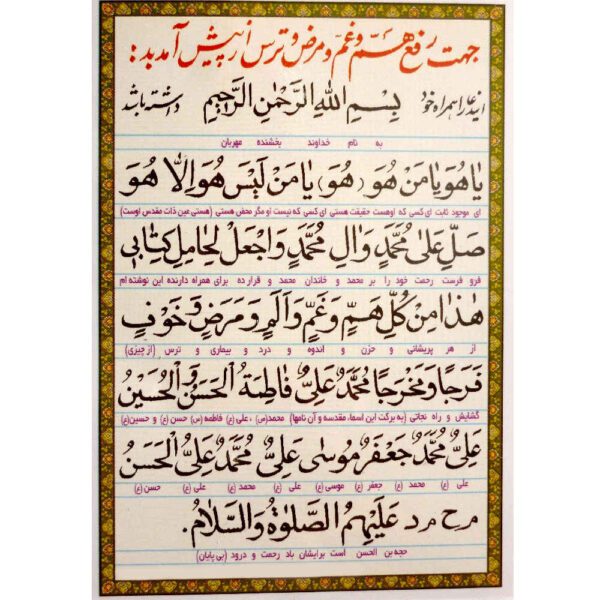 جهت رفع هَمّ و غمّ و مرض و ترس از پیش آمد بد:
ایندعا را همراه خود بِسْمِ اللهِ الرَّحْمٰنِ الرَّحِیمِ داشته باشد
به نام خداوند بخشنده مهربان
یٰا هُوَ یٰا مَنْ هُوَ (هُوَ) یٰا مَنْ لَیْسَ هُوَ اِلّٰا هُوَ
ای موجود ثابت ای کسی که اوهست حقیقت هستی ای کسی که نیست او مگر محض هستی (هستی عین ذات مقدس اوست)
صَلِّ عَلیٰ مُحَمَّدٍ وَاٰلِ مُحَمَّدٍ وَاجْعَلْ لِحٰامِلِ کِتٰابی
فرو فرست رحمت خود را بر محمد و خاندان محمد و قرار ده برای همراه دارنده این نوشته ام
هٰذٰا مِنْ کُلِّ هَمٍّ وَغَمٍّ وَاَلَمٍ وَمَرَضٍ وَخَوْفٍ
از هر پریشانی و حزن و اندوه و درد و بیماری و ترس (از چیزی)
فَرَجاً وَمَخْرَجاً مُحَمَّدٌ عَلِیٌّ فٰاطِمَةُ اَلْحَسَنُ وَالْحُسَیْنُ
گشایش و راه نجاتی (به برکت این اسماء مقدسه و آن نامها) محمد(ص) ، علی (ع) فاطمه (س) حسن (ع) و حسین(ع)
عَلِیٌّ مُحَمَّدٌ جَعْفَرٌ مُوسیٰ عَلِیٌّ مُحَمَّدٌ عَلِیٌّ اَلْحَسَنُ
علی (ع) محمد (ع) جعفر (ع) موسی (ع) علی (ع) محمد (ع) علی (ع) حسن (ع)
م ح م د عَلَیْهِمُ الصَّلوٰةُ وَالسَّلٰامُ.
حجه بن الحسن است برایشان باد رحمت و درود (بی پایان)